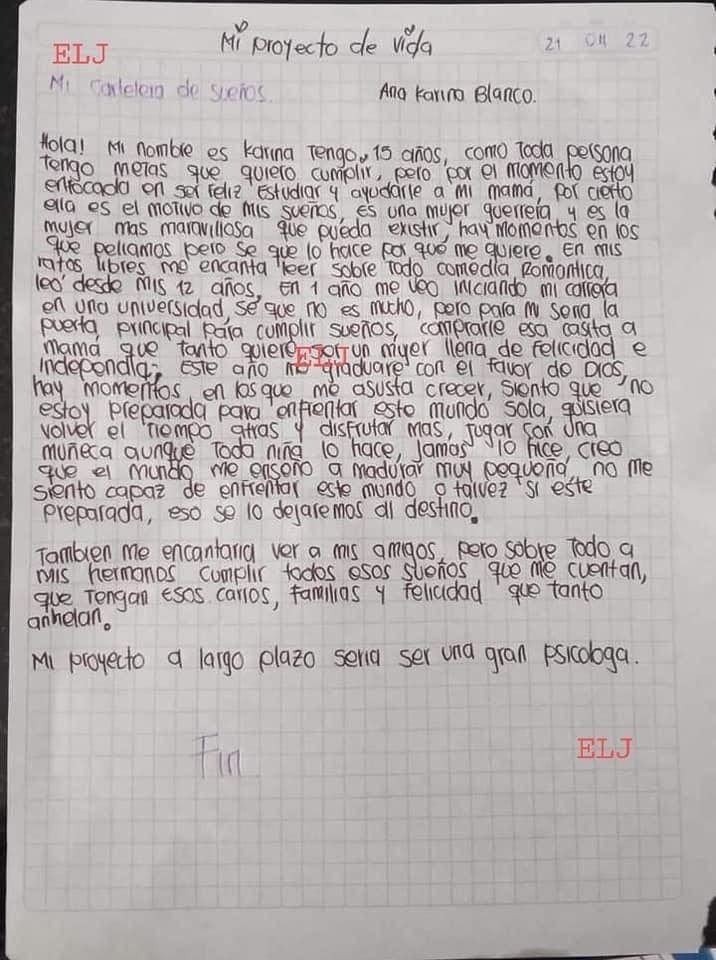 Mi proyecto de vida
ELJ
21 04 22
Mi cartelera de sueños.
Ana Karina Blanco.
Hola! Mi nombre es Karina Tengo 15 años, como toda persona
tengo metas que quiero cumplir, pero por el momento estoy
enfocada en ser feliz Estudiar y ayudarle a mi mamá, por cierto
ella es el motivo de mis sueños, es una mujer guerrera, y es la
mujer mas maravillosa que pueda existir, hay momentos en los
que peliamos pero se que lo hace por que me quiere. En mis
ratos libres me encanta leer sobre todo comedia Romantica,
leo desde mis 12 años, En 1 año me veo iniciando mi carrera
en una universidad, sé que no es mucho, pero para mi seria la
puerta principal para cumplir sueños, comprarle esa casita a
mamá que tanto quiere, ser un myer llena de felicidad e
ELJ
Independia, Este año me graduare con el favor de Dios,
hay momentos en los que me asusta crecer, siento que no
estoy preparada para enfrentar este mundo sola, quisiera
volver el tiempo atras y disfrutar mas, jugar con una
muñeca aunque toda niña lo hace, jamas lo hice, creo
que el mundo me enseño a madurar muy pequeña, no me
siento capaz de enfrentar este mundo o talvez si este
preparada, eso se lo dejaremos al destino.
Tambien me encantaria ver a mis amigos, pero sobre todo a
mis hermanos cumplir todos esos sueños que me cuentan,
que tengan esos carros, familias y felicidad que tanto
anhelan.
Mi proyecto a largo plazo seria ser una gran psicologa.
Fin
ELJ